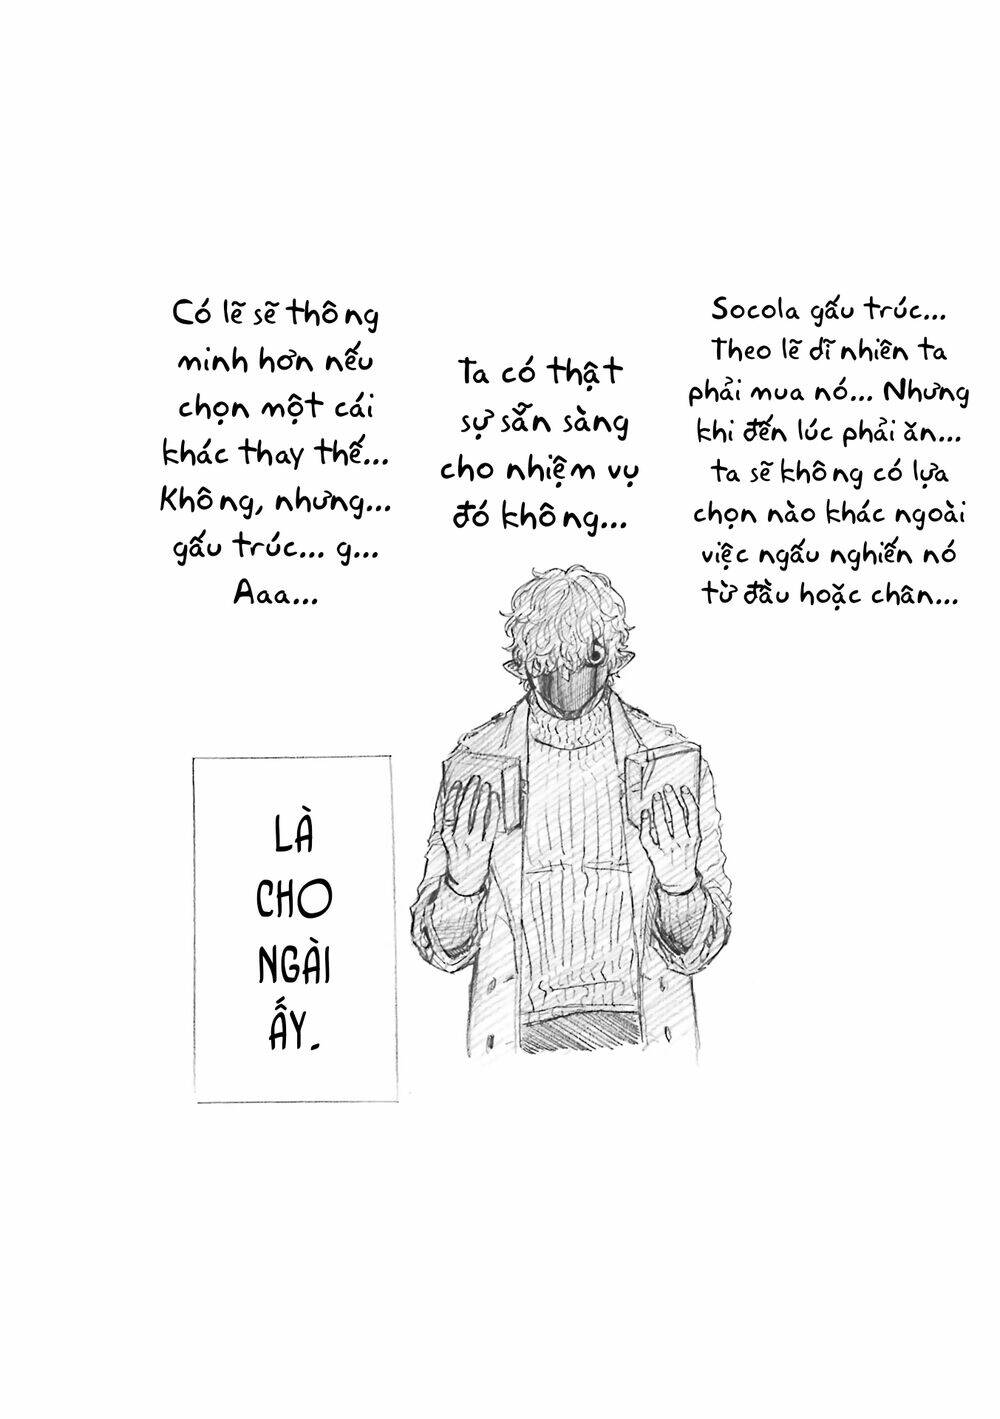 Socola gấu trúc...
Theo lẽ dĩ nhiên ta
phải mua nó... Nhưng
khi đến lúc phải ăn...
ta sẽ không có lựa
chọn nào khác ngoài
việc ngấu nghiến nó
từ đầu hoặc chân...
Ta có thật
sự sẵn sàng
cho nhiệm vụ
đó không...
Có lẽ sẽ thông
minh hơn nếu
chọn một cái
khác thay thế...
Không, nhưng...
gấu trúc... g...
Aaa...
LÀ
CHO
NGÀI
ẤY.